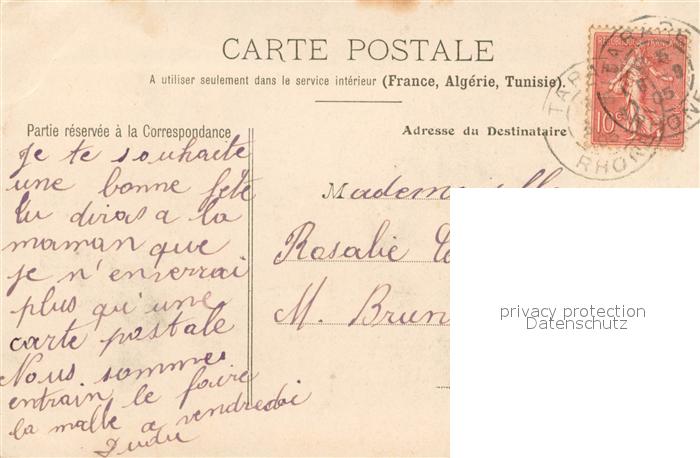 CARTE POSTALE
A utiliser seulement dans le service intérieur (France, Algérie, Tunisie).
Partie réservée à la Correspondance
Adresse du Destinataire
Je te souhaite
une bonne fête
tu diras a la
maman que
je n'enverrai
plus qu'une
carte postale
Nous sommes
entrain le faire
la malle a vendredi
Mademoiselle
Rosalie
M. Brun
10
TARARE
RHONE
privacy protection
Datenschutz